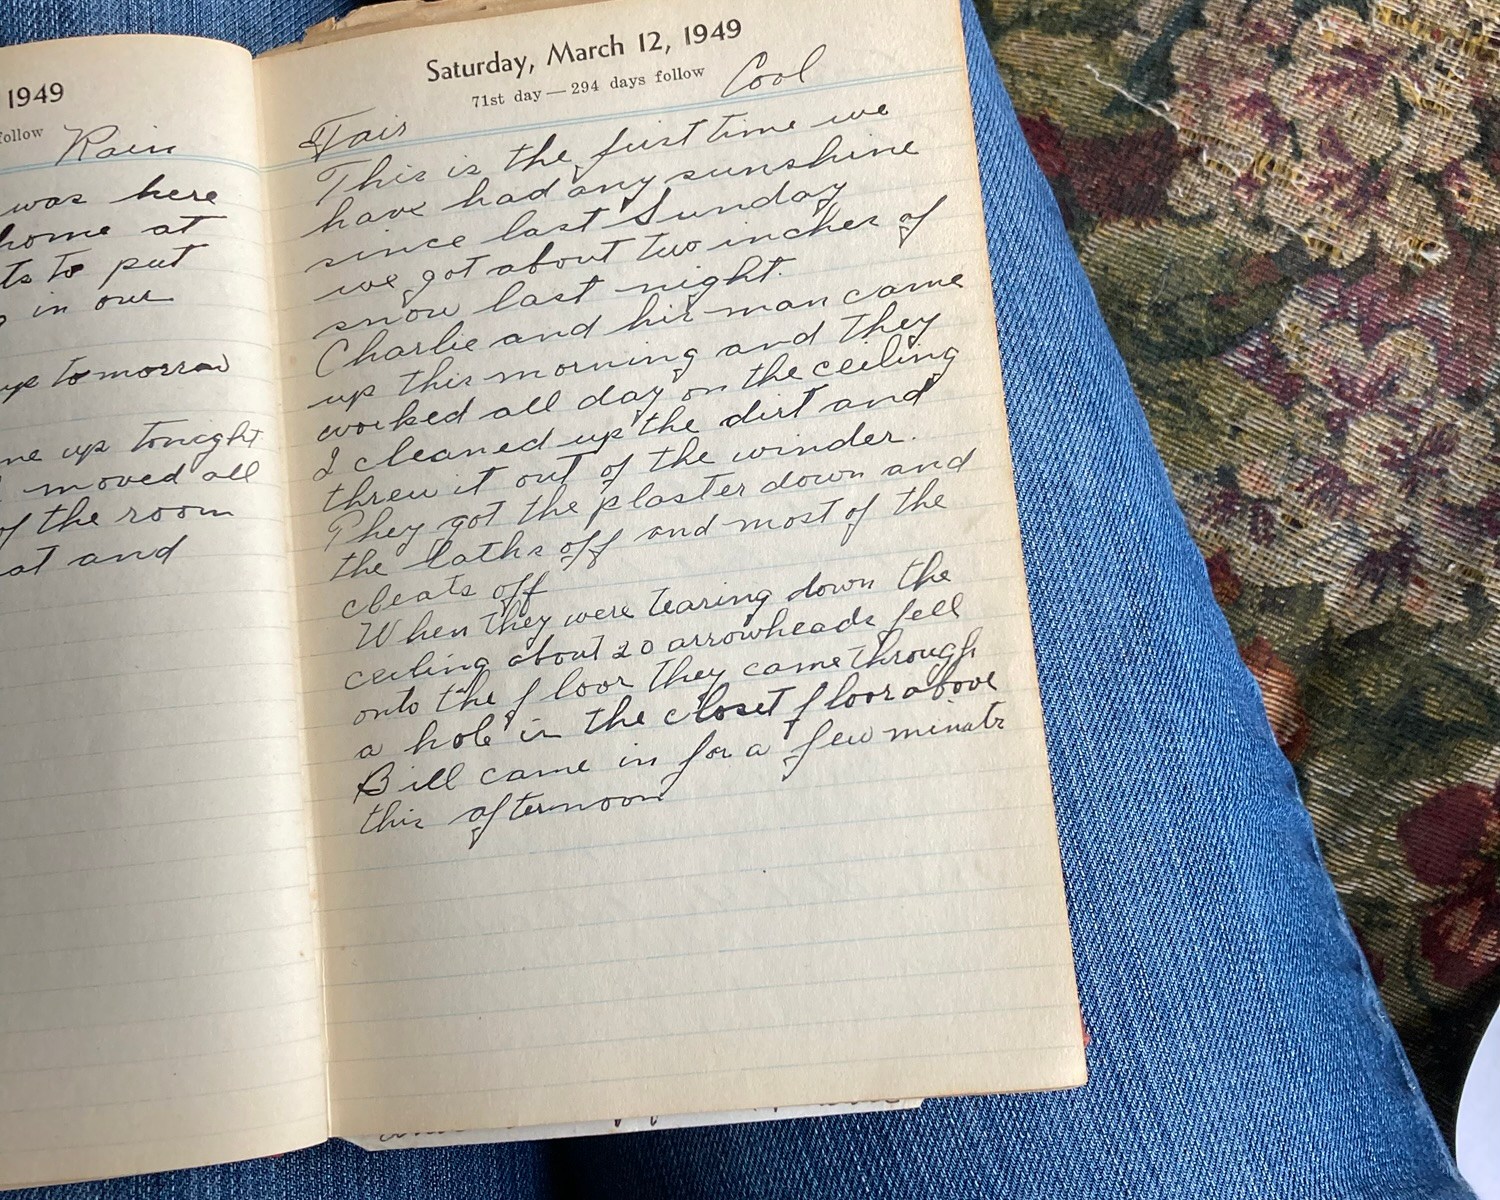 1949
follow Rain
was here
home at
ts to put
in our
up tomorrow
me up tonight
moved all
of the room
at and
Saturday, March 12, 1949
71st day — 294 days follow Cool
Fair
This is the first time we
have had any sunshine
since last Sunday
we got about two inches of
snow last night.
Charlie and his man came
up this morning and they
worked all day on the ceiling
I cleaned up the dirt and
threw it out of the winder.
They got the plaster down and
the laths off and most of the
cleats off
When they were tearing down the
ceiling about 20 arrowheads fell
onto the floor they came through
a hole in the closet floor above
Bill came in for a few minuts
this afternoon